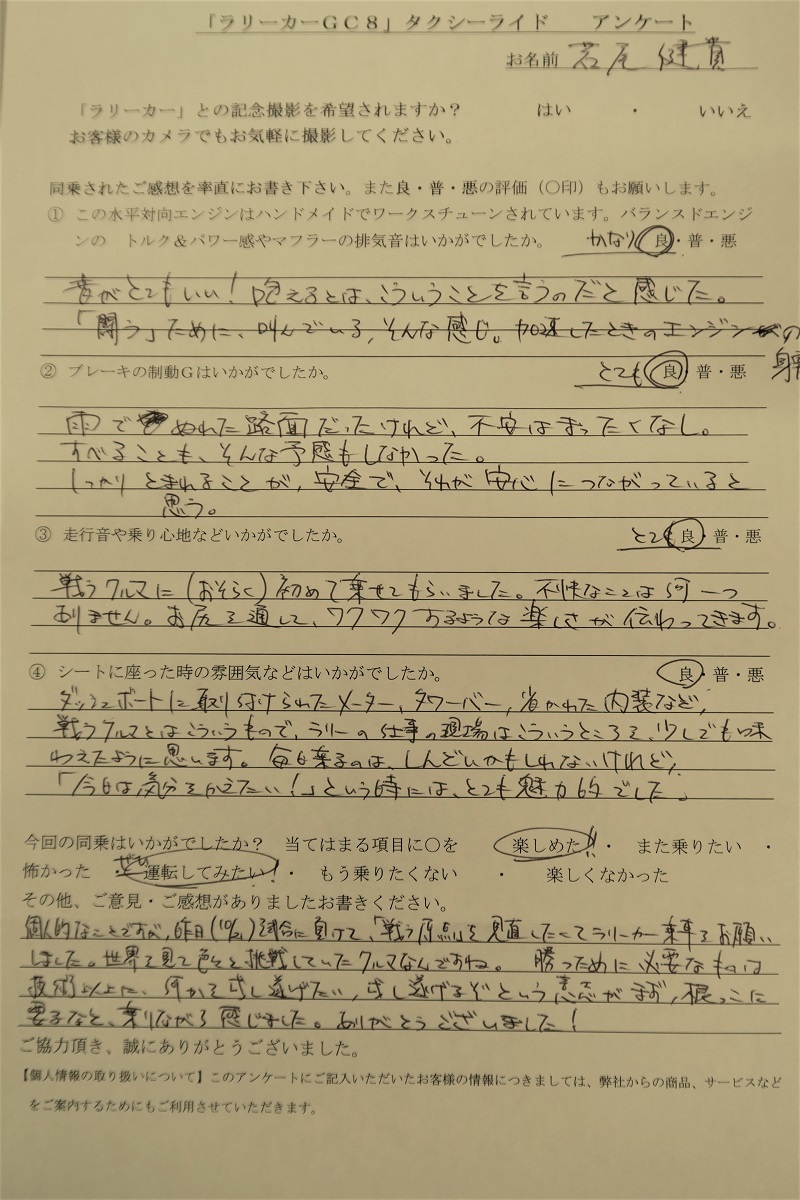 「ラリーカーGC8」タクシーライド　　アンケート
お名前 岩尾 健貴
「ラリーカー」との記念撮影を希望されますか？　　はい　・　いいえ
お客様のカメラでもお気軽に撮影してください。
同乗されたご感想を率直にお書き下さい。また良・普・悪の評価（〇印）もお願いします。
① この水平対向エンジンはハンドメイドでワークスチューンされています。バランスドエンジ
ンの　トルク＆パワー感やマフラーの排気音はいかがでしたか。　かなり 良・普・悪
音がとてもいい！咆えるとは、こういうことを言うのだと感じた。
「闘う」ために、叫んでいる、そんな感じ。加速したときのエンジンの
② ブレーキの制動Gはいかがでしたか。　とても 良・普・悪
雨でぬれた路面だったけれど、不安はまったくなし。
すべることも、そんな予感もしなかった。
しっかりとまれることが、安全で、それが安心につながっていると
思う。
③ 走行音や乗り心地などいかがでしたか。　とても 良・普・悪
戦うクルマに（おそらく）初めて乗せてもらいました。不快なことは何一つ
ありません。お尻を通して、ワクワクするような楽しさが伝わってきます。
④ シートに座った時の雰囲気などはいかがでしたか。　良・普・悪
ダッシュボートに取り付けられたメーター、タワーバー、省かれた内装など、
戦うクルマとはこういうもので、ラリーの仕事の現場はこういうところを、少しでも味
わえたように思います。毎日乗るのは、しんどいかもしれないけれど、
「今日は気分をかえたい！」という時には、とても魅力的でした。
今回の同乗はいかがでしたか？　当てはまる項目に〇を　楽しめた!!・　また乗りたい　・
怖かった　・ ぜひ 運転してみたい！・　もう乗りたくない　・　楽しくなかった
その他、ご意見・ご感想がありましたお書きください。
個人的なことですが、昨日（10/　）試合に負けて、「戦う原点」を見直したくてラリーカー乗車をお願い
しました。世界を見て色々と挑戦していたクルマなんですね。　勝つために必要なものは
技術以上に、何かを成し遂げたい、成し遂げるぞという意志がまず、根っこに
要るなと、乗りながら感じました。ありがとうございました！
ご協力頂き、誠にありがとうございました。
【個人情報の取り扱いについて】このアンケートにご記入いただいたお客様の情報につきましては、弊社からの商品、サービスなど
をご案内するためにもご利用させていただきます。